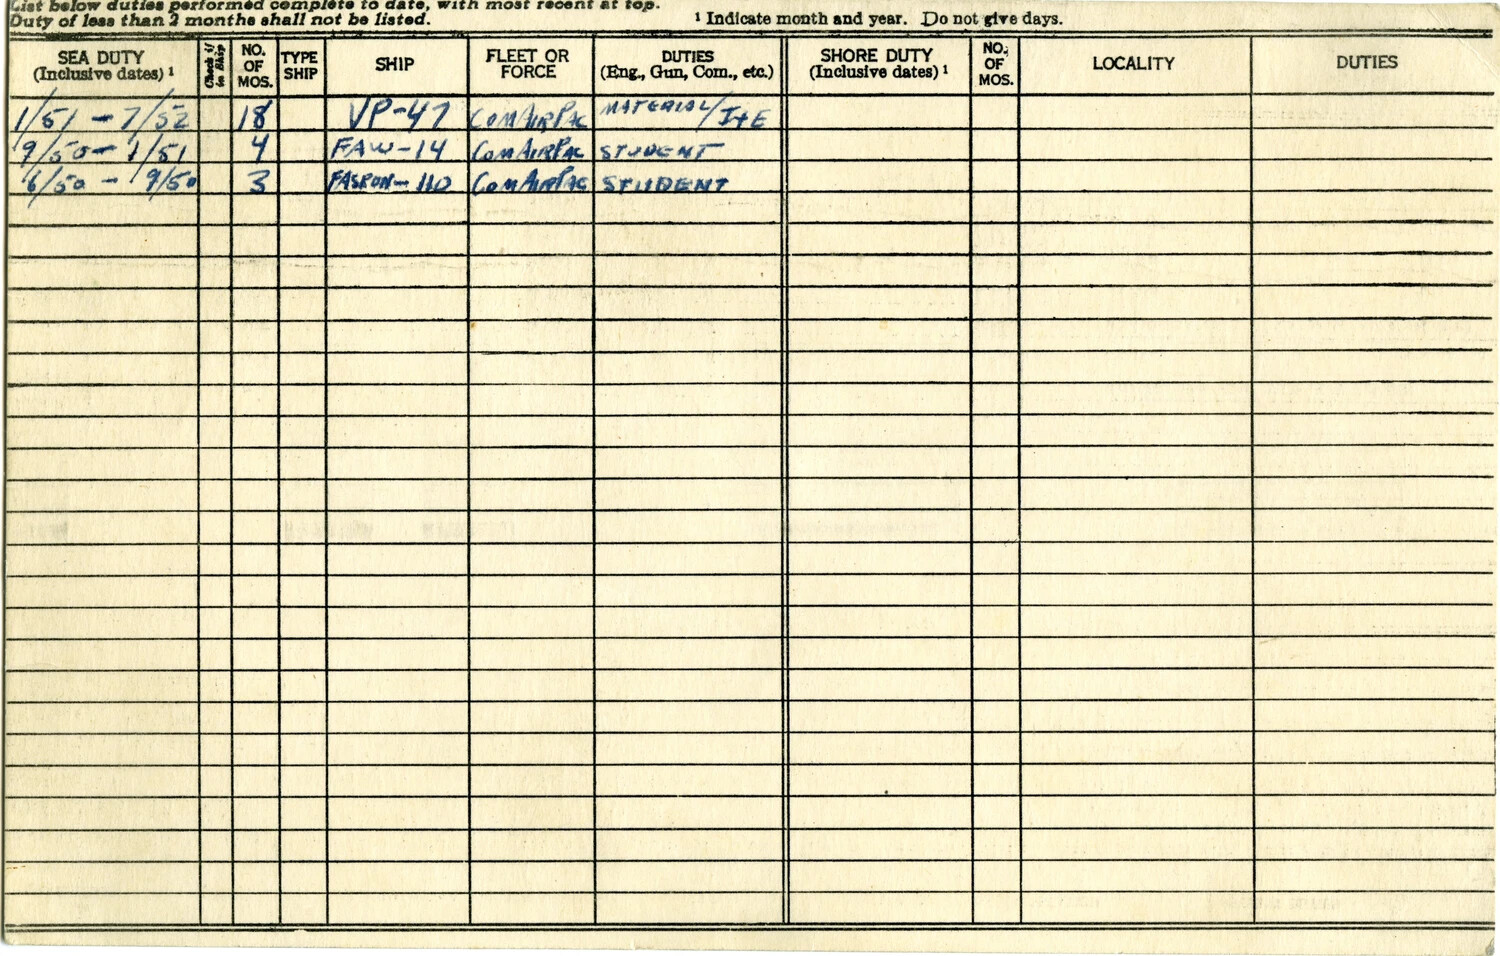 List below duties performed complete to date, with most recent at top.
Duty of less than 2 months shall not be listed. ¹ Indicate month and year. Do not give days.
SEA DUTY (Inclusive dates) ¹ NO. OF MOS. TYPE SHIP SHIP FLEET OR FORCE DUTIES (Eng., Gun, Com., etc.) SHORE DUTY (Inclusive dates) ¹ NO. OF MOS. LOCALITY DUTIES
1/51 - 7/52 18 VP-47 COMAIRPAC MATERIAL/I+E
9/50 - 1/51 4 FAW-14 COMAIRPAC STUDENT
6/50 - 9/50 3 FASRON-110 COMAIRPAC STUDENT